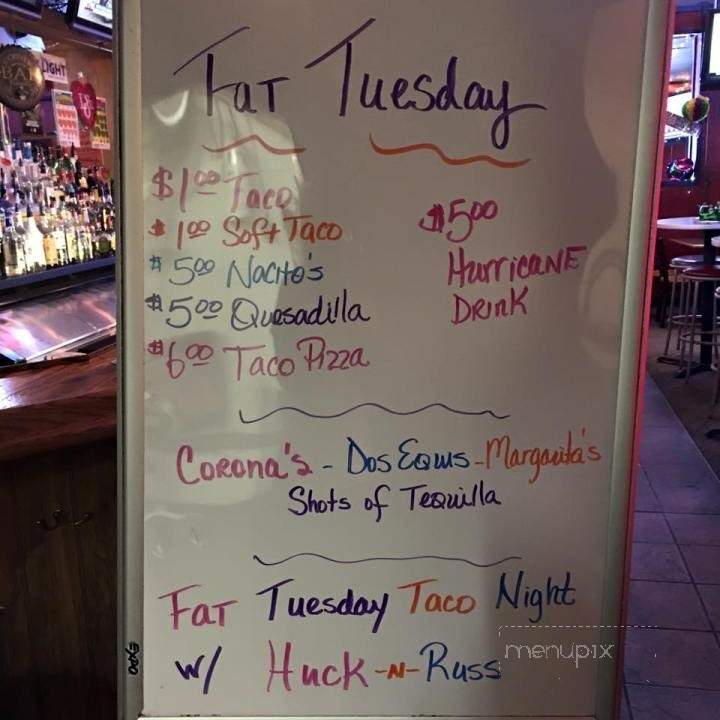 Fat Tuesday
$1.00 Taco
$1.00 Soft Taco
$5.00 Nacho's
$5.00 Quesadilla
$6.00 Taco Pizza
$5.00
Hurricane
Drink
Corona's - Dos Equis - Margarita's
Shots of Tequilla
Fat Tuesday Taco Night
w/ Huck -N- Russ
EXPO
menupix
BAR
LIGHT